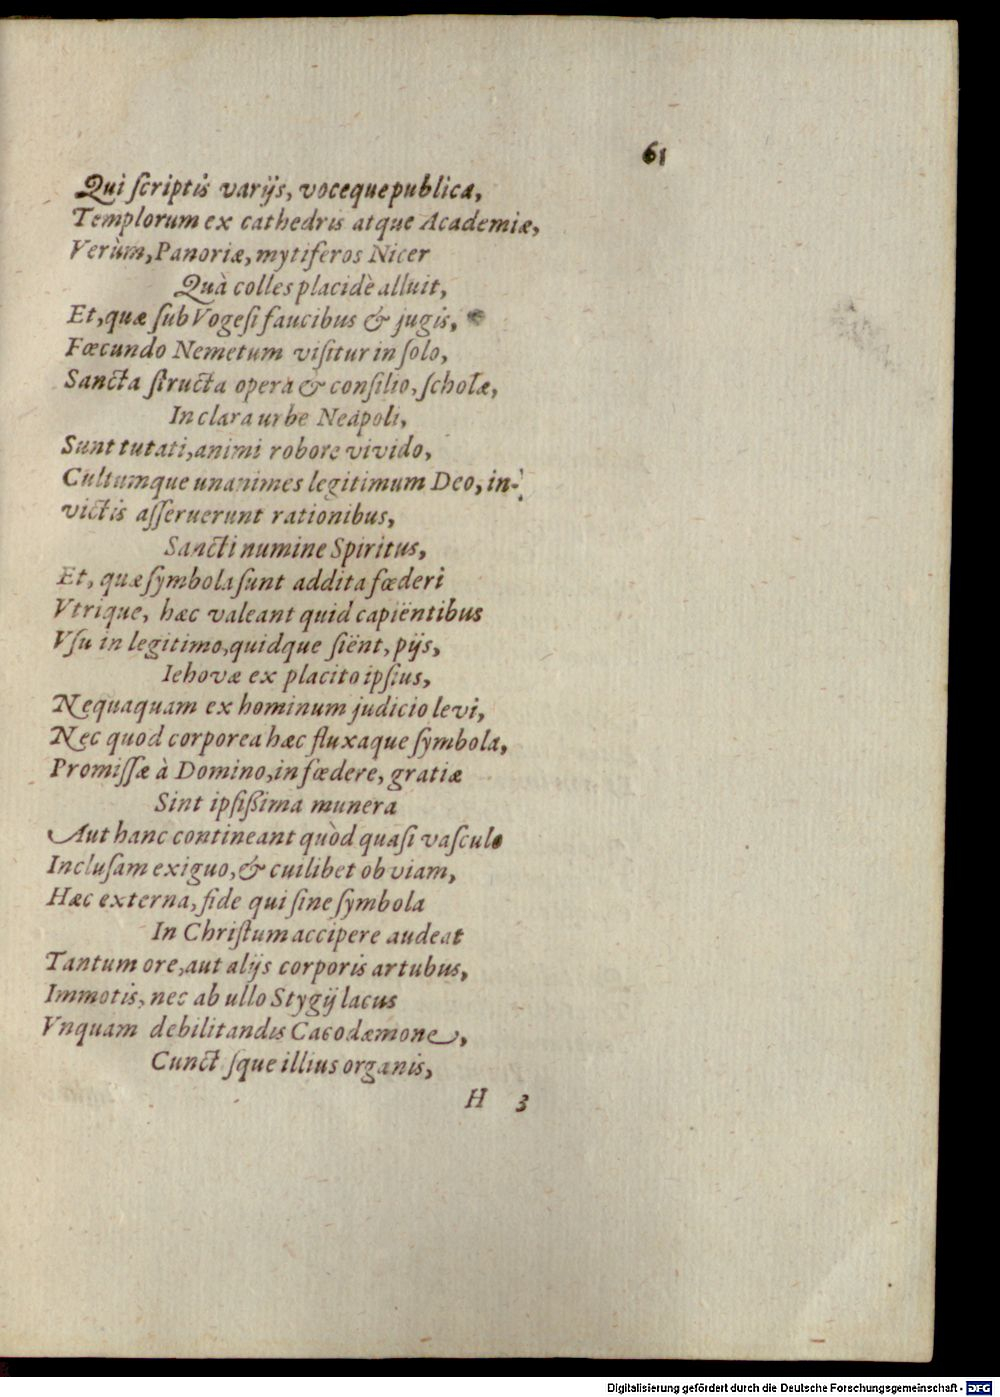 61
Qui ſcriptis varijs, vocequepublica,
Templorum ex cathedris atque Academiæ,
Verùm, Panoriæ, mytiferos Nicer
Quà colles placidè alluit,
Et, quæ ſub Vogeſi faucibus & jugis,
Fœcundo Nemetum viſitur in ſolo,
Sancta ſtructa operâ & conſilio, ſcholæ,
In clara urbe Neapoli,
Sunt tutati, animi robore vivido,
Cultumque unanimes legitimum Deo, in-
victis aſſeruerunt rationibus,
Sancti numine Spiritus,
Et, quæ ſymbola ſunt addita fœderi
Vtrique, hæc valeant quid capiëntibus
Vſu in legitimo, quidque ſiënt, pijs,
Iehovæ ex placito ipſius,
Nequaquam ex hominum judicio levi,
Nec quod corporea hæc fluxaque ſymbola,
Promiſſæ à Domino, in fœdere, gratiæ
Sint ipſiſsima munera
Aut hanc contineant quòd quaſi vaſculo
Incluſam exiguo, & cuilibet obviam,
Hæc externa, fide qui ſine ſymbola
In Chriſtum accipere audeat
Tantum ore, aut alijs corporis artubus,
Immotis, nec ab ullo Stygij lacus
Vnquam debilitandis Cacodæmone,
Cunct ſque illius organis,
H 3
Digitalisierung gefördert durch die Deutsche Forschungsgemeinschaft - DFG